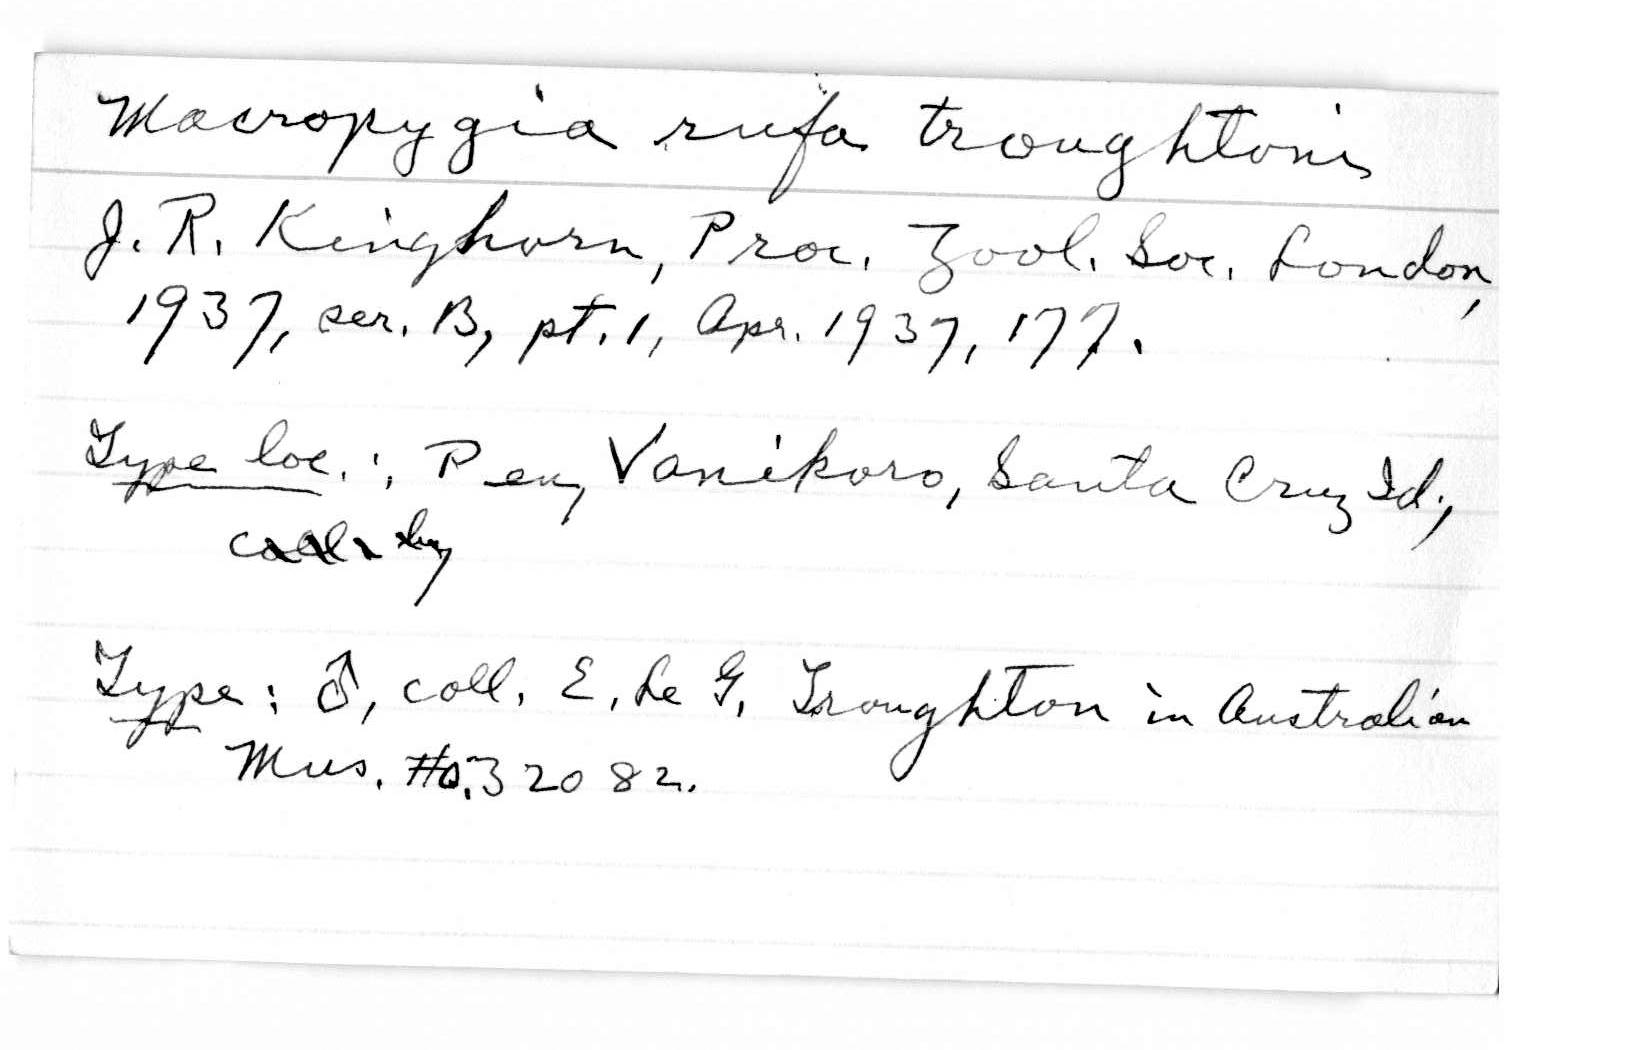 Macropygia rufa troughtoni
J. R. Kinghorn, Proc. Zool. Soc. London,
1937, ser. B, pt. 1, Apr. 1937, 177.
Type loc.: Peu, Vanikoro, Santa Cruz Id.;
coll. by
Type: ♂, coll. E. Le G. Troughton in Australian
Mus. No. 32082.